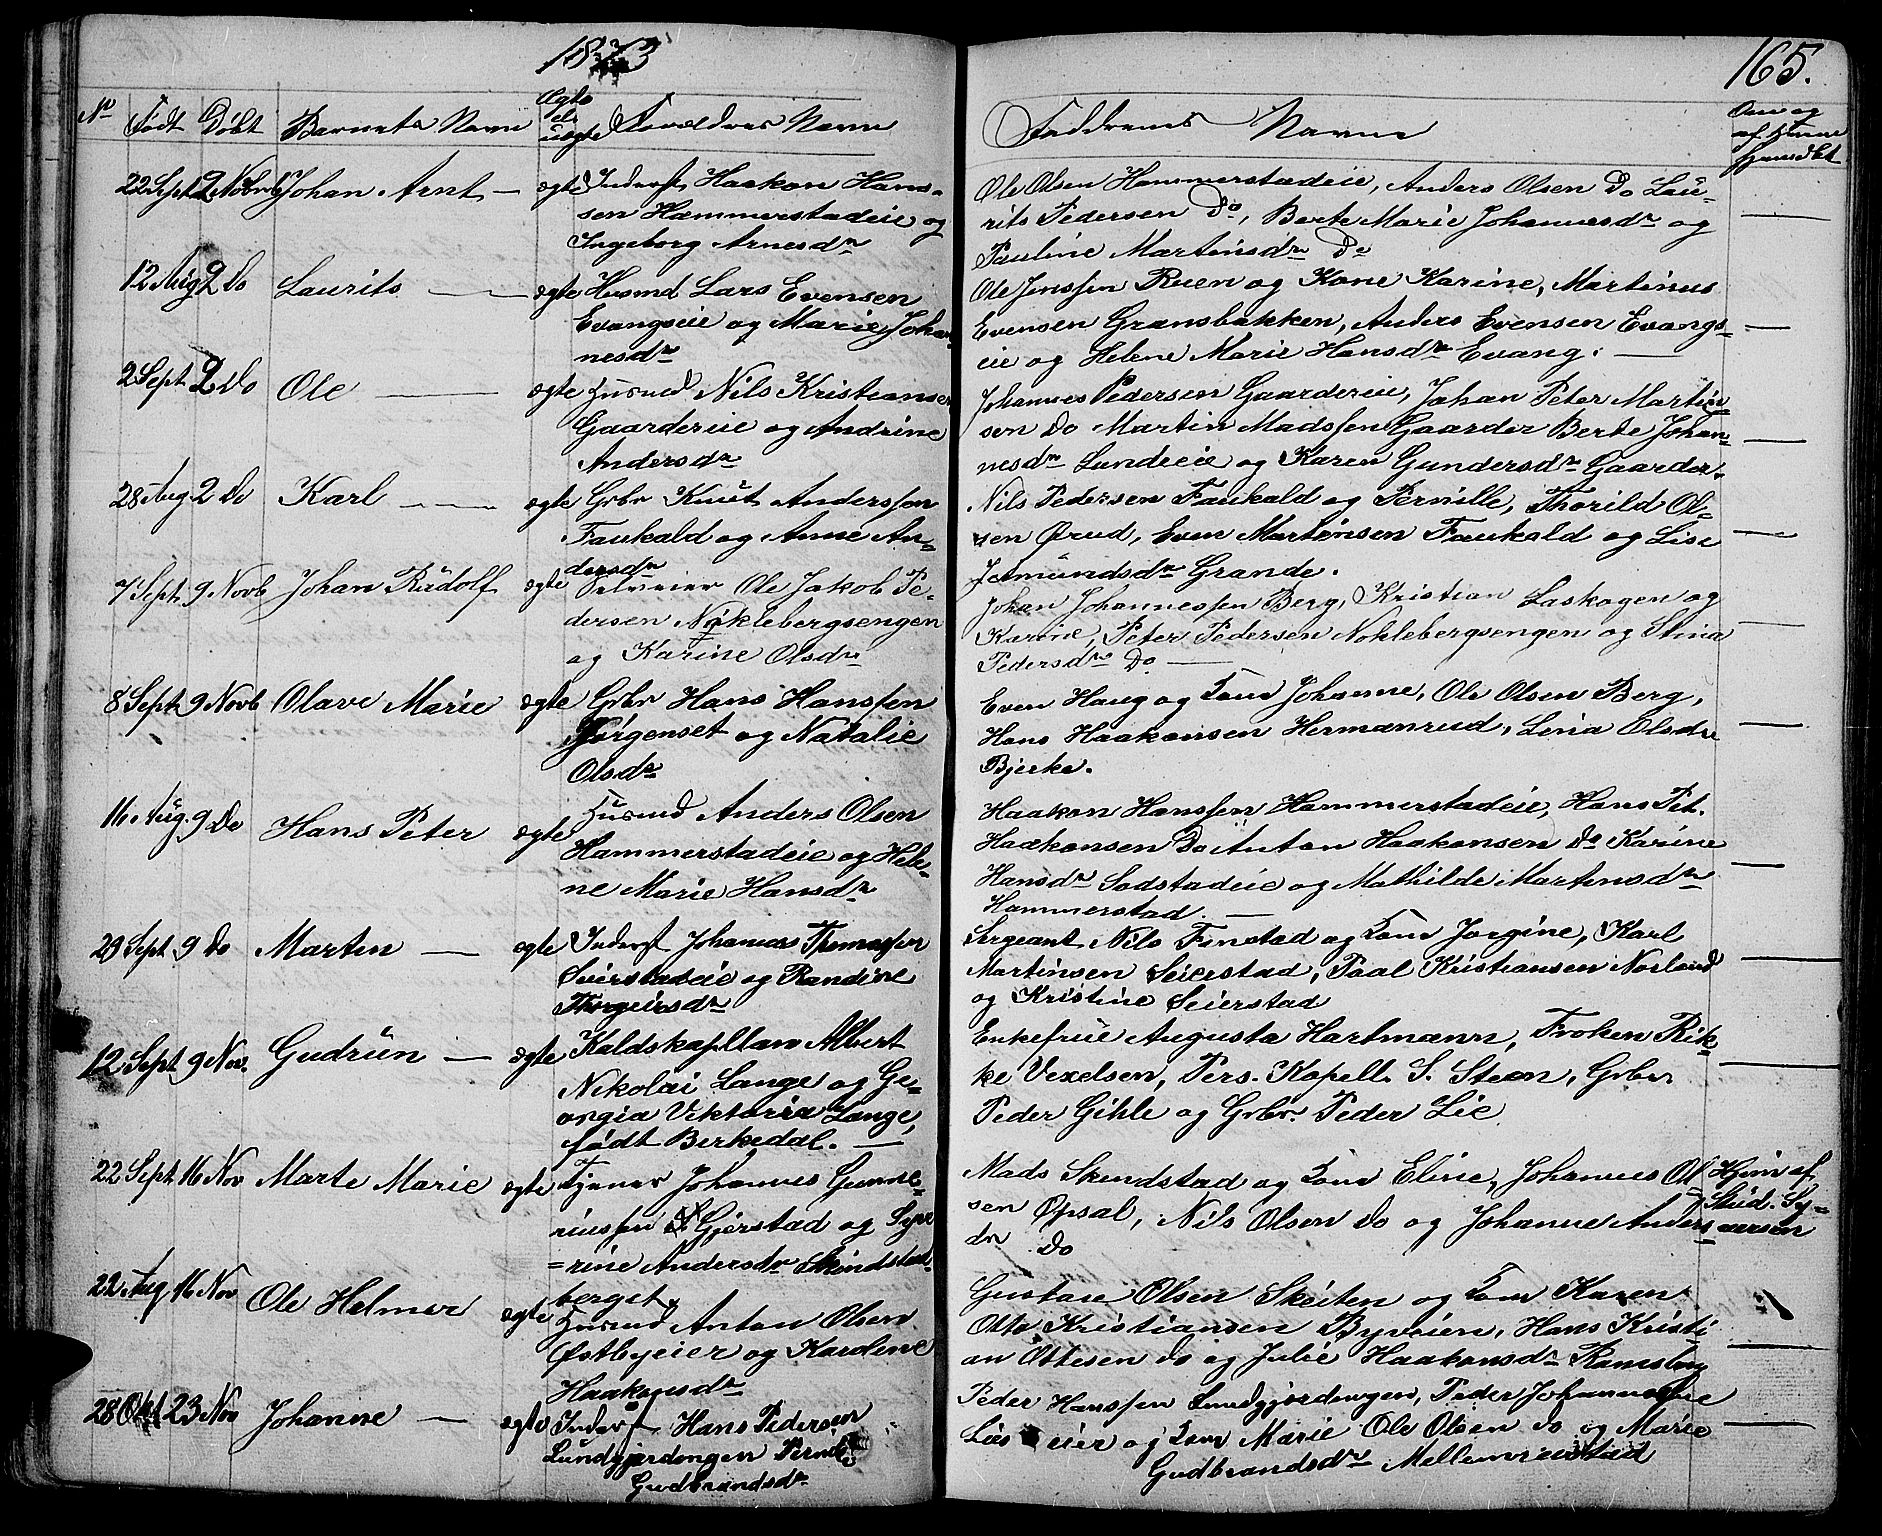 1873
165.
No Født Døbt Barnets Navn Ægte el. uægte Forældres Navne
Faddrenes Navne
Om og af hvem hjemdøbt
22 Sept 2 Novb Johan Arnt — ægte Inderst Haakon Han-
sen Hammerstadeie og
Ingeborg Arnesdr
Ole Olsen Hammerstadeie, Anders Olsen Do Lau-
rits Pedersen Do, Berte Marie Johannesdr og
Pauline Martinsdr Do
12 Aug 2 Do Laurits — ægte Husmd Lars Evensen
Evangseie og Marie Johan-
nesdr
Ole Jenssen Ruen og Kone Karine, Martinus
Evensen Gransbakken, Anders Evensen Evangs-
eie og Helene Marie Hansdr Evang. —
2 Sept 2 Do Ole — ægte Husmd Nils Kristiansen
Gaardereie og Andrine
Andersdr
Johannes Pedersen Gaardereie, Johan Peter Martin-
sen Do Martin Madssen Gaarder Berte Johan-
nesdr Lundeeie og Karen Gundersdr Gaarder.
28 Aug 2 Do Karl — ægte Grbr Knut Anderssen
Faukald og Anne An-
dersdr
Nils Pedersen Faukald og Pernille, Thorild Ol-
sen Ørud, Even Martinsen Faukald og Lise
Jermundsdr Grande.
7 Sept 9 Novb Johan Rudolf ægte Selveier Ole Jakob Pe-
dersen Nøklebergsengen
og Karine Olsdr
Johan Johannessen Berg, Kristian Laskogen og
Karine, Peter Pedersen Noklebergsengen og Stina
Pedersdr Do —
8 Sept 9 Novb Olave Marie ægte Grbr Hans Hanssen
Jørgenset og Natalie
Olsdr
Even Haug og Kone Johanne, Ole Olsen Berg,
Hans Haakonsen Hermanrud, Lina Olsdr
Bjerke.
16 Aug. 9 Do Hans Peter ægte Husmd Anders Olsen
Hammerstadeie og Hele-
ne Marie Hansdr
Haakon Hanssen Hammerstadeie, Hans Pet.
Haakonsen Do Anton Haakonsen Do Karine
Hansdr Sodstadeie og Mathilde Martinsdr
Hammerstad. —
29 Sept 9 Do Martin — ægte Inderst Johannes Thomassen
Seierstadeie og Randine
Thorgeirsdr
Sergeant Nils Finstad og Kone Jorgine, Karl
Martinsen Seierstad, Paal Kristiansen Norland
og Kristine Seierstad
12 Sept 9 Nov. Gudrun — ægte Kaldskapellan Albert
Nikolai Lange og Ge-
orgia Viktoria Lange,
født Berkedal. —
Enkefrue Augusta Hartmann, Froken Rik-
ke Vexelsen, Pers. Kapell. S. Steen, Grbr
Peder Gihle og Grbr. Peder Lie
22 Sept 16 Nov Marte Marie ægte Tjener Johannes Gunne-
riussen Gjerstad og Syve-
rine Andersdr Skindstad-
berget
Mads Skindstad og Kone Eline, Johannes Ol-
sen Opsal, Nils Olsen Do og Johanne Anders-
dr Do
Hjem af
Stud. Sy-
versen
22 Aug 16 Nov Ole Helmer ægte Husmd Anton Olsen
Østbyeier og Karoline
Haakonsdr
Gustave Olsen Skeiten og Kone Karen
Otto Kristiansen Byveien, Hans Kristi-
an Ottesen Do og Julie Haakonsdr Ramsberg
28 Okt 23 Nov Johanne — ægte Inderst Hans Pedersen
Lundgjordengen Pernille
Gudbrandsdr
Peder Hanssen Lundgjordengen, Peder Johannessen
Lies eier og Kone Marie Ole Olsen Do og Marie
Gudbrandsdr Mellemreistad